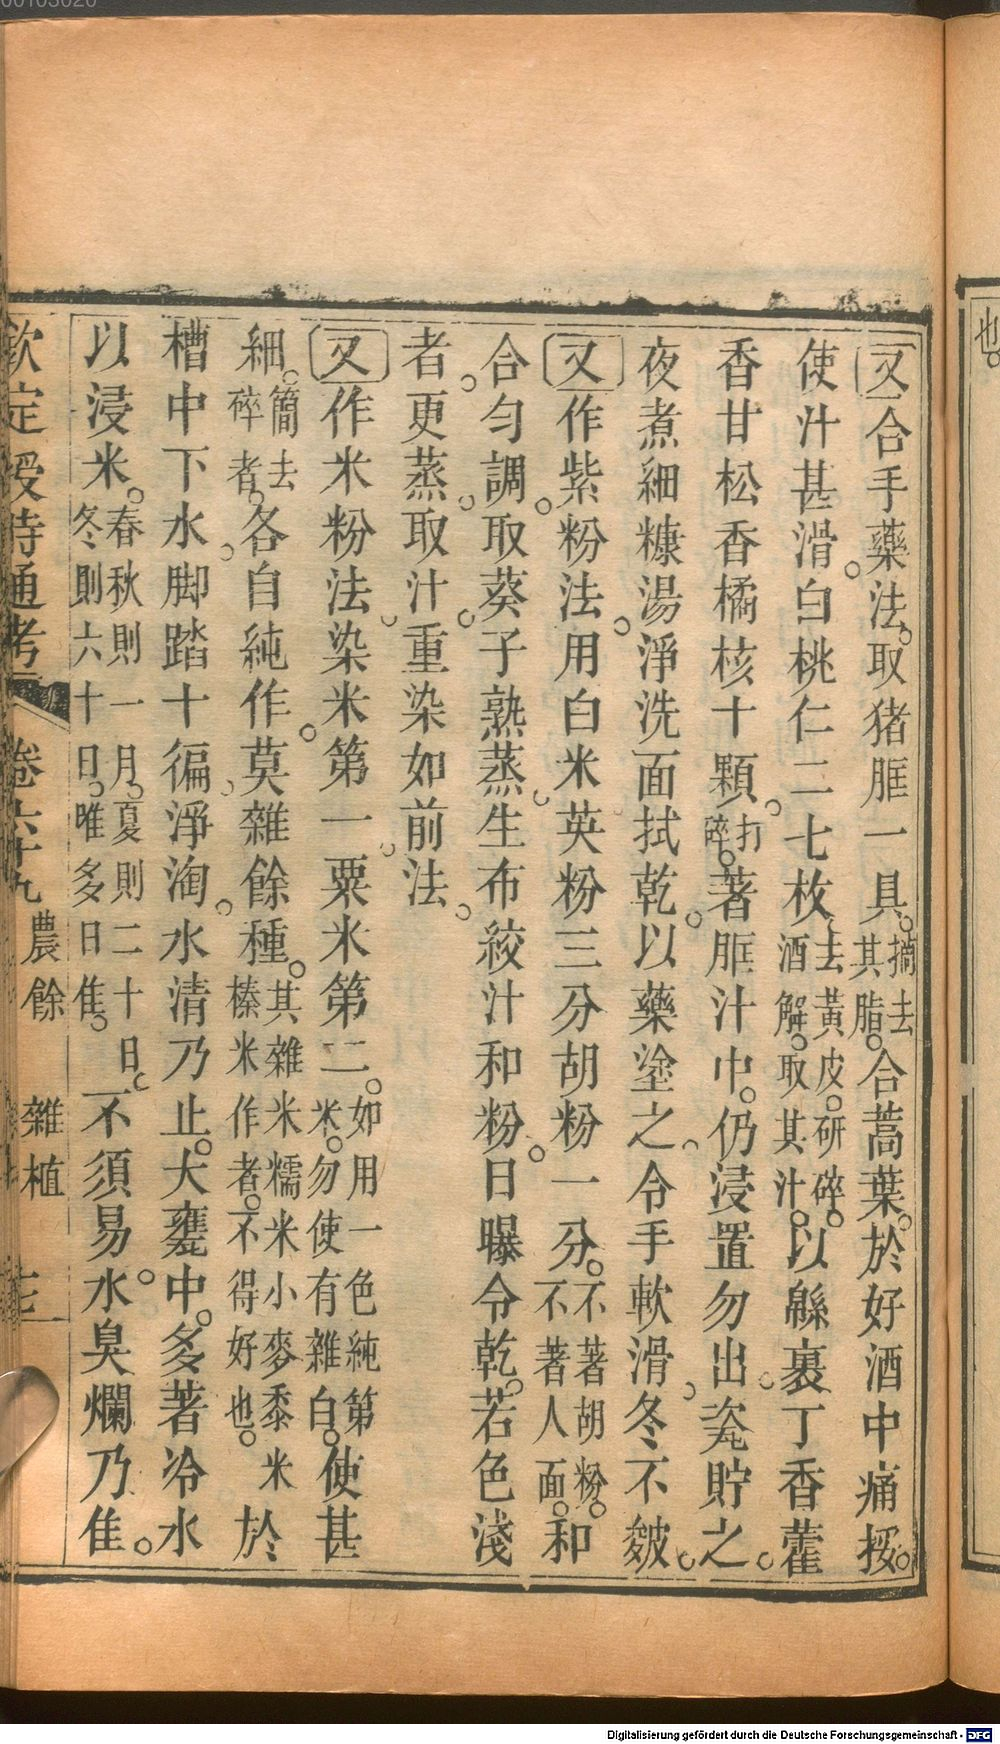 00103020
也。
又合手藥法。取猪胆一具。摘去其脂。合蒿葉。於好酒中痛挼。
使汁甚滑。白桃仁二七枚。去黃皮。研碎。酒解。取其汁。以緜裏丁香藿
香甘松香橘核十顆。打碎。著胆汁中。仍浸置勿出。瓷貯之。
夜煮細糠湯。淨洗面拭乾。以藥塗之。令手軟滑。冬不皴。
又作紫粉法。用白米英粉三分。胡粉一分。不著胡粉。不著人面。和
合勻調。取葵子熟蒸。生布絞汁和粉。日曝令乾。若色淺
者。更蒸。取汁。重染如前法。
又作米粉法。染米。第一粟米。第二。如用一色純第米。勿使有雜白。使甚
細。簡去碎者。各自純作。莫雜餘種。其雜米糯米小麥黍米榛米作者。不得好也。於
槽中下水。脚踏十徧。淨淘。水清乃止。大甕中。多著冷水
以浸米。春秋則一月。夏則二十日。冬則六十日。唯多日隹。不須易水。臭爛乃隹。
欽定授時通考 卷六十九 農餘 雜植 七
Digitalisierung gefördert durch die Deutsche Forschungsgemeinschaft - DFG